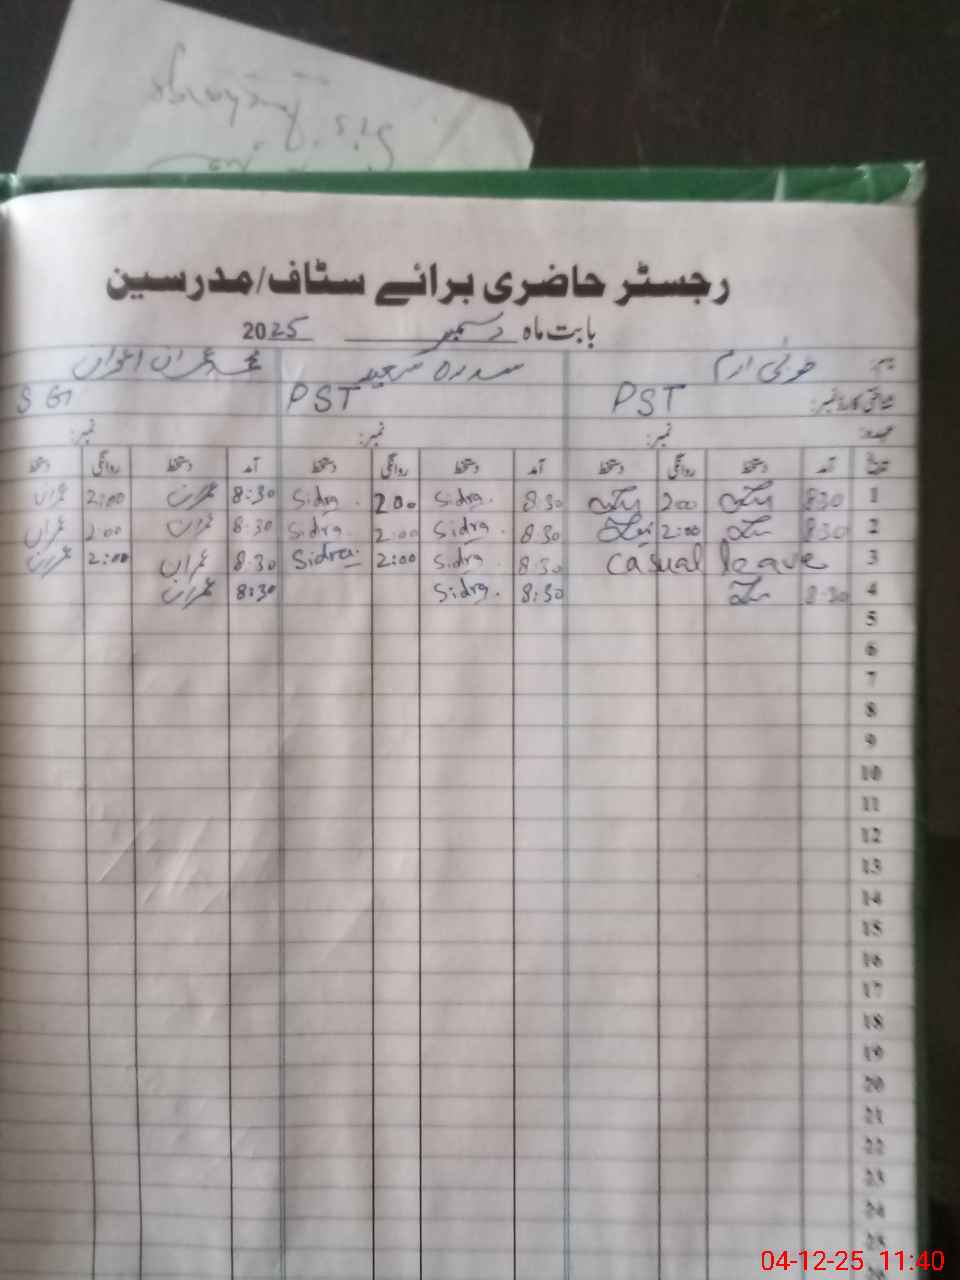 رجسٹر حاضری برائے سٹاف/مدرسین
بابت ماہ دسمبر 2025
نام: ارم سدرہ سعید محمد عمران اعوان
شناختی کارڈ نمبر: PST PST
عہدہ: نمبر: نمبر: نمبر:
تاریخ آمد دستخط روانگی دستخط آمد دستخط روانگی دستخط آمد دستخط روانگی دستخط
1 8:30 2:00 8:30 Sidra. 2:00 Sidra. 8:30 عمران 2:00 عمران
2 8:30 2:00 8:30 Sidra. 2:00 Sidra. 8:30 عمران 2:00 عمران
3 casual leave 8:30 Sidra. 2:00 Sidra. 8:30 عمران 2:00 عمران
4 8:30 8:30 Sidra. 8:30 عمران
5
6
7
8
9
10
11
12
13
14
15
16
17
18
19
20
21
22
23
24
25
04-12-25 11:40